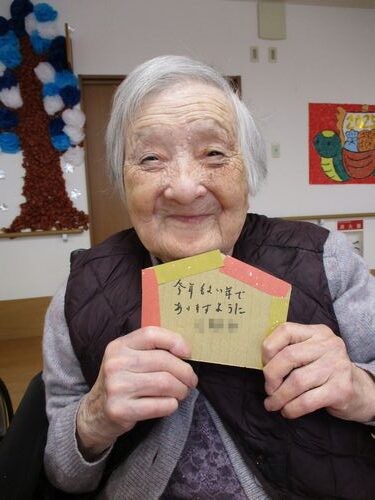 今年もよい年で
ありますように
2025